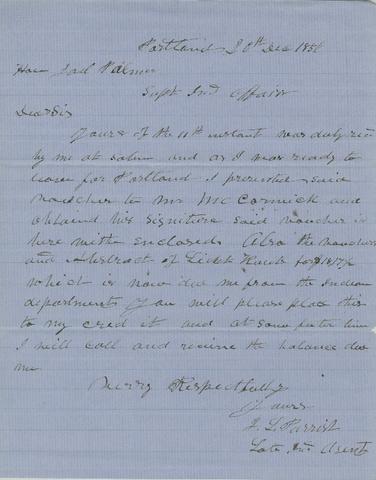 Portland 30th Dec 1856
Hon Joel Palmer
Supt Ind Affairs
Dear Sir
Yours of the 11th instant was duly rec
by me at Salem and as I was ready to
leave for Portland I presented said
voucher to Mr McCormick and
obtained his signiture said voucher is
here with enclosed. Also the vouchers
and Abstract of
which is now due me from the Indian
department you will please place this
to my credit and at some futer time
I will call and receive the balance due
me
Verry Respectfully
Yours
J. L. Parrish
Late Ind Agent